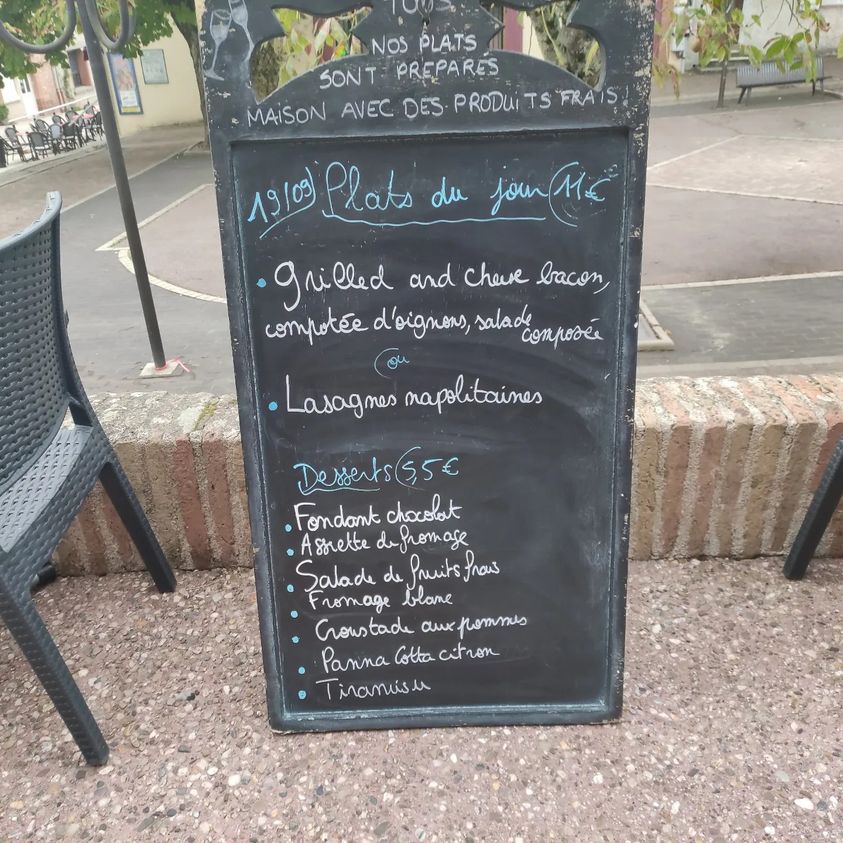 TOUS
NOS PLATS
SONT PREPARES
MAISON AVEC DES PRODUITS FRAIS!
19/09 Plats du jour 11€
• Grilled and cheese bacon,
compotée d'oignons, salade composée
ou
• Lasagnes napolitaines
Desserts 5,5€
• Fondant chocolat
• Assiette de fromage
• Salade de fruits frais
Fromage blanc
• Croustade aux pommes
• Panna Cotta citron
• Tiramisu